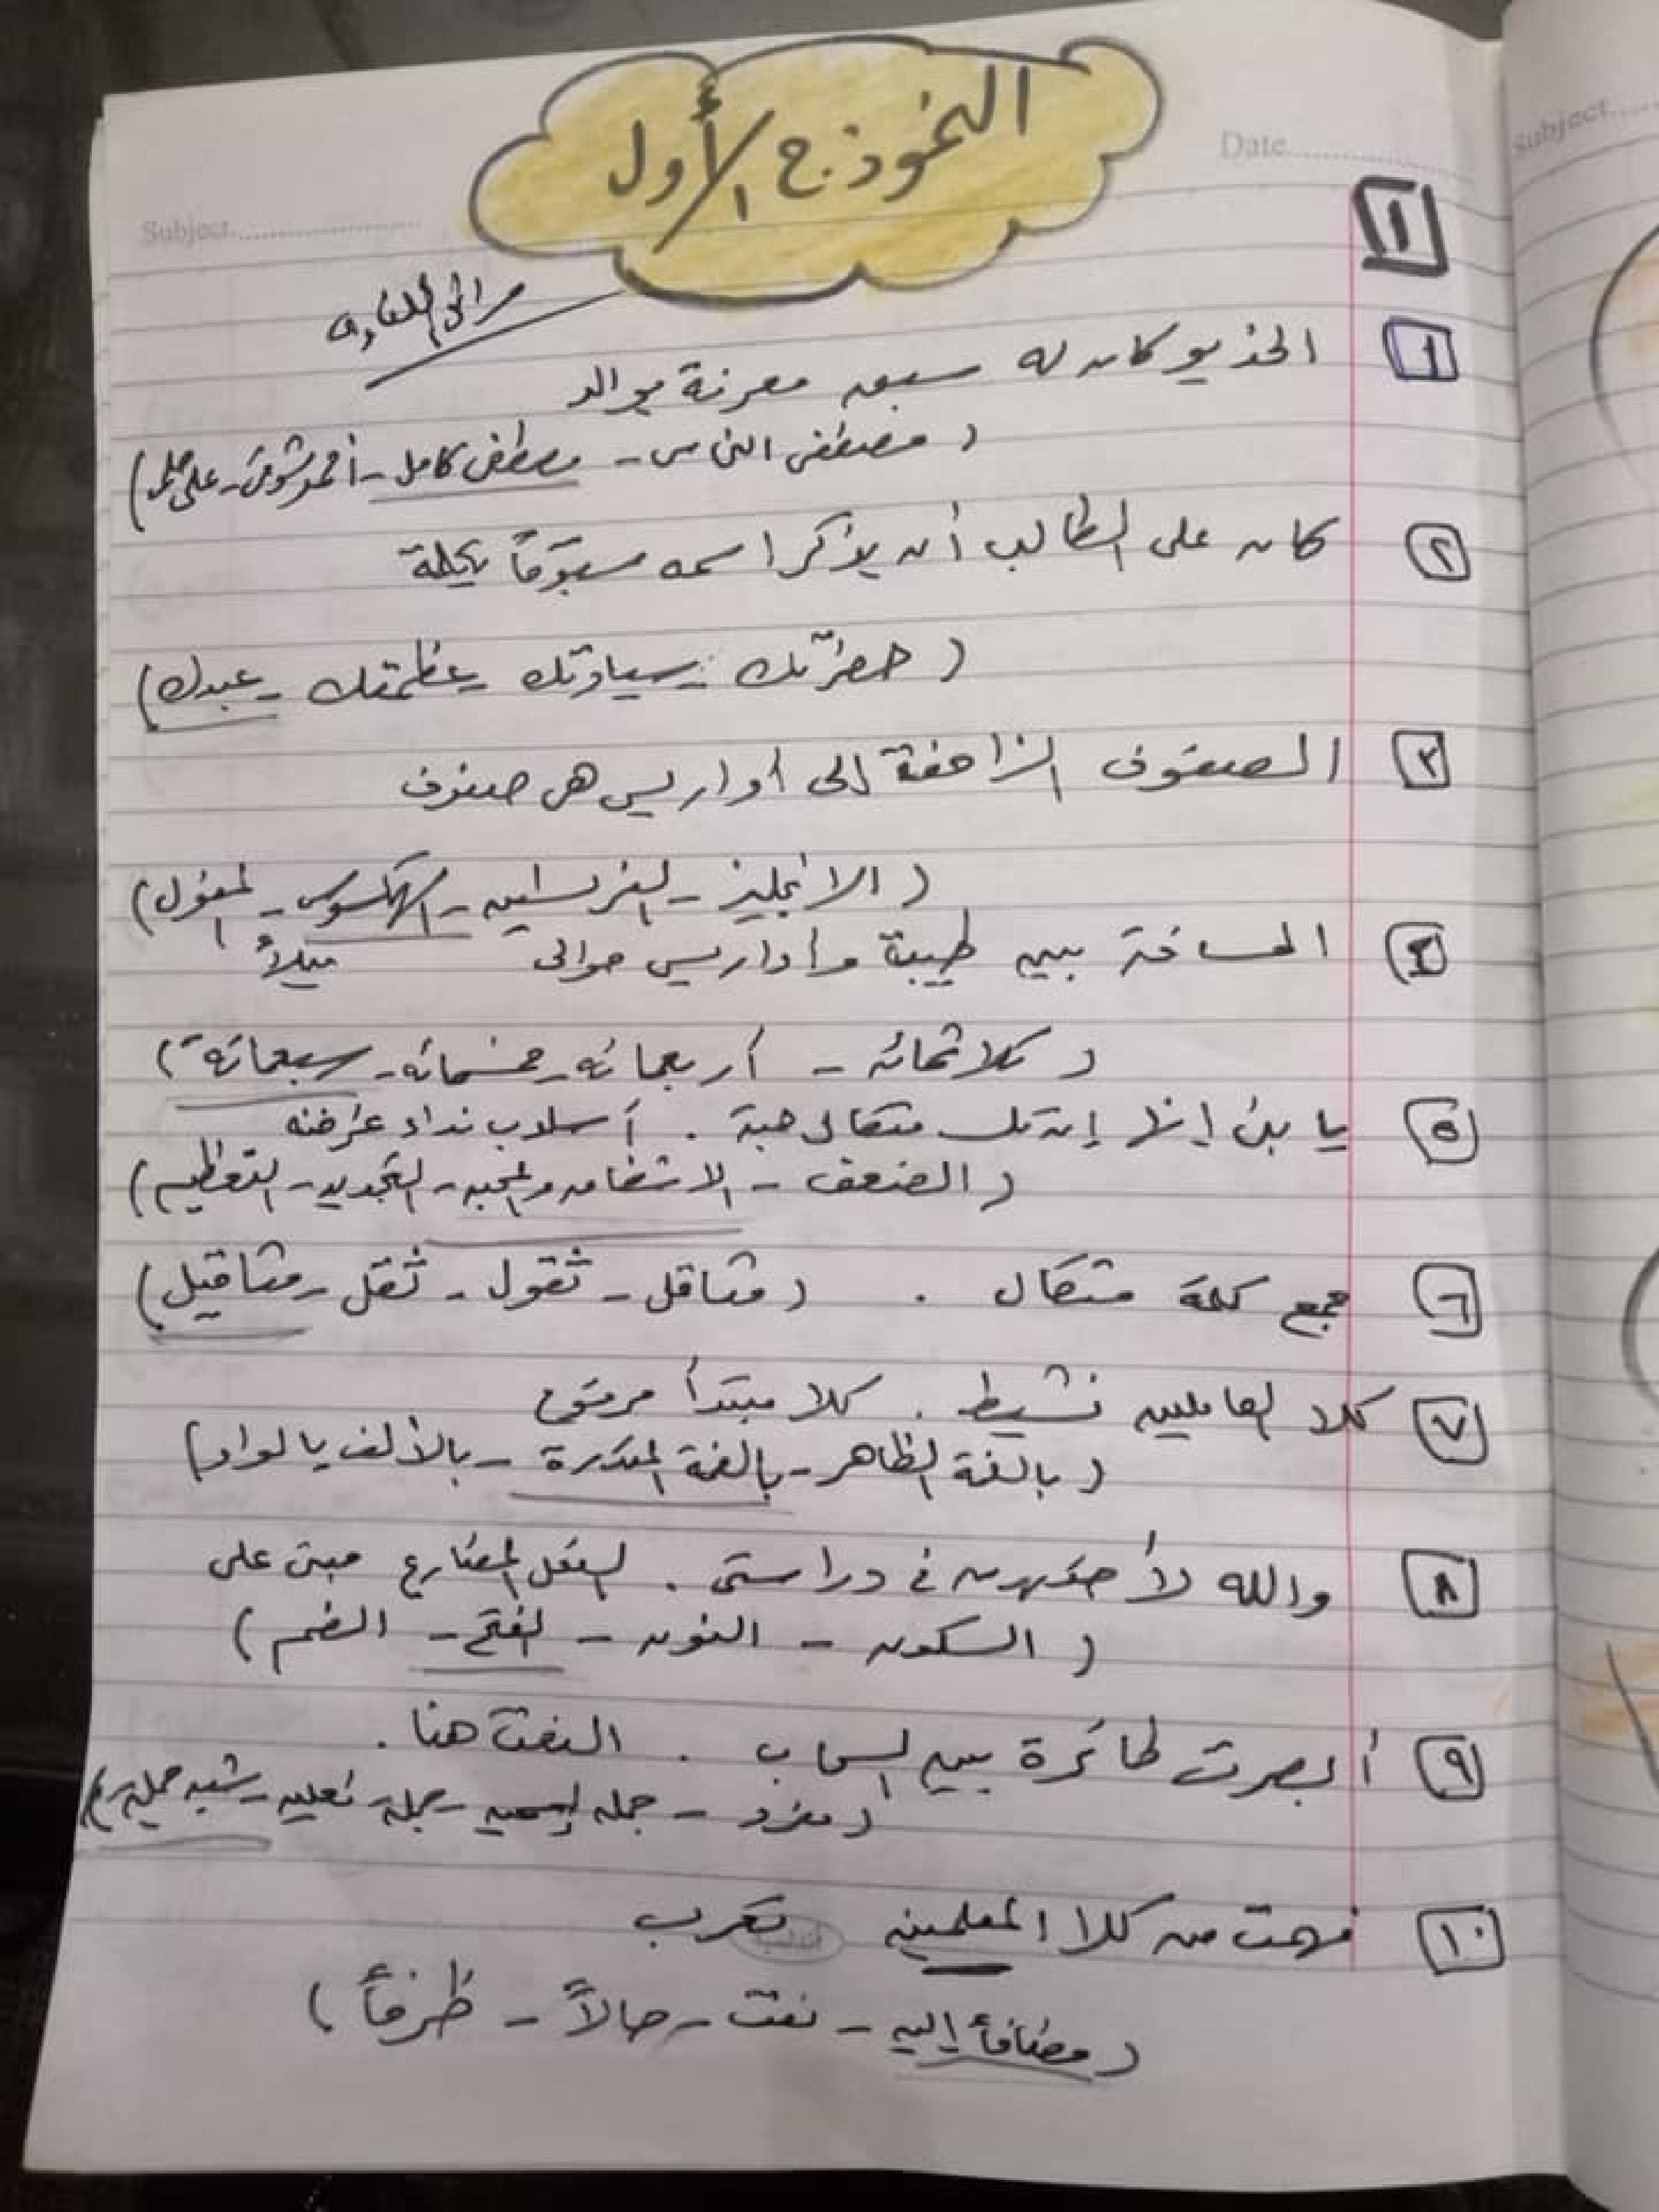 النموذج الأول
Date
Subject
Subject
١
١ الخديو كان له سبق معرفة بوالد
( مصطفى النحاس - مصطفى كامل - أحمد شوقى - على )
٢ كان على الطالب أن يذكر اسمه مسبوقاً بكلمة
( حضرتك - سيادتك - عظمتك - عبدك )
٣ الصفوف الزاحفة إلى أواريس هى صفوف
( الانجليز - الفرنسيين - الهكسوس - المغول )
٤ المسافة بين طيبة وأواريس حوالى ميلاً
( ثلاثمائه - أربعمائه - خمسمائه - سبعمائة )
٥ يا بنى إنها إن تك مثقال حبة . أسلوب نداء غرضه
( الضعف - الاشفاق والمحبه - التهديد - التعظيم )
٦ جمع كلمة مثقال . ( مثاقل - ثقول - ثقل - مثاقيل )
٧ كلا العاملين نشيط . كلا مبتدأ مرفوع
( بالضمة الظاهر - بالضمة المقدرة - بالألف بالواو )
٨ والله لأجتهدن فى دراستى . الفعل المضارع مبنى على
( السكون - النون - الفتح - الضم )
٩ أبصرت طائرة بين السحاب . النعت هنا .
( مفرد - جمله إسميه - جملة فعليه - شبه جملة )
١٠ فهمت من كلا المعلمين تعرب
( مضافاً إليه - نعت - حالاً - ظرفاً )